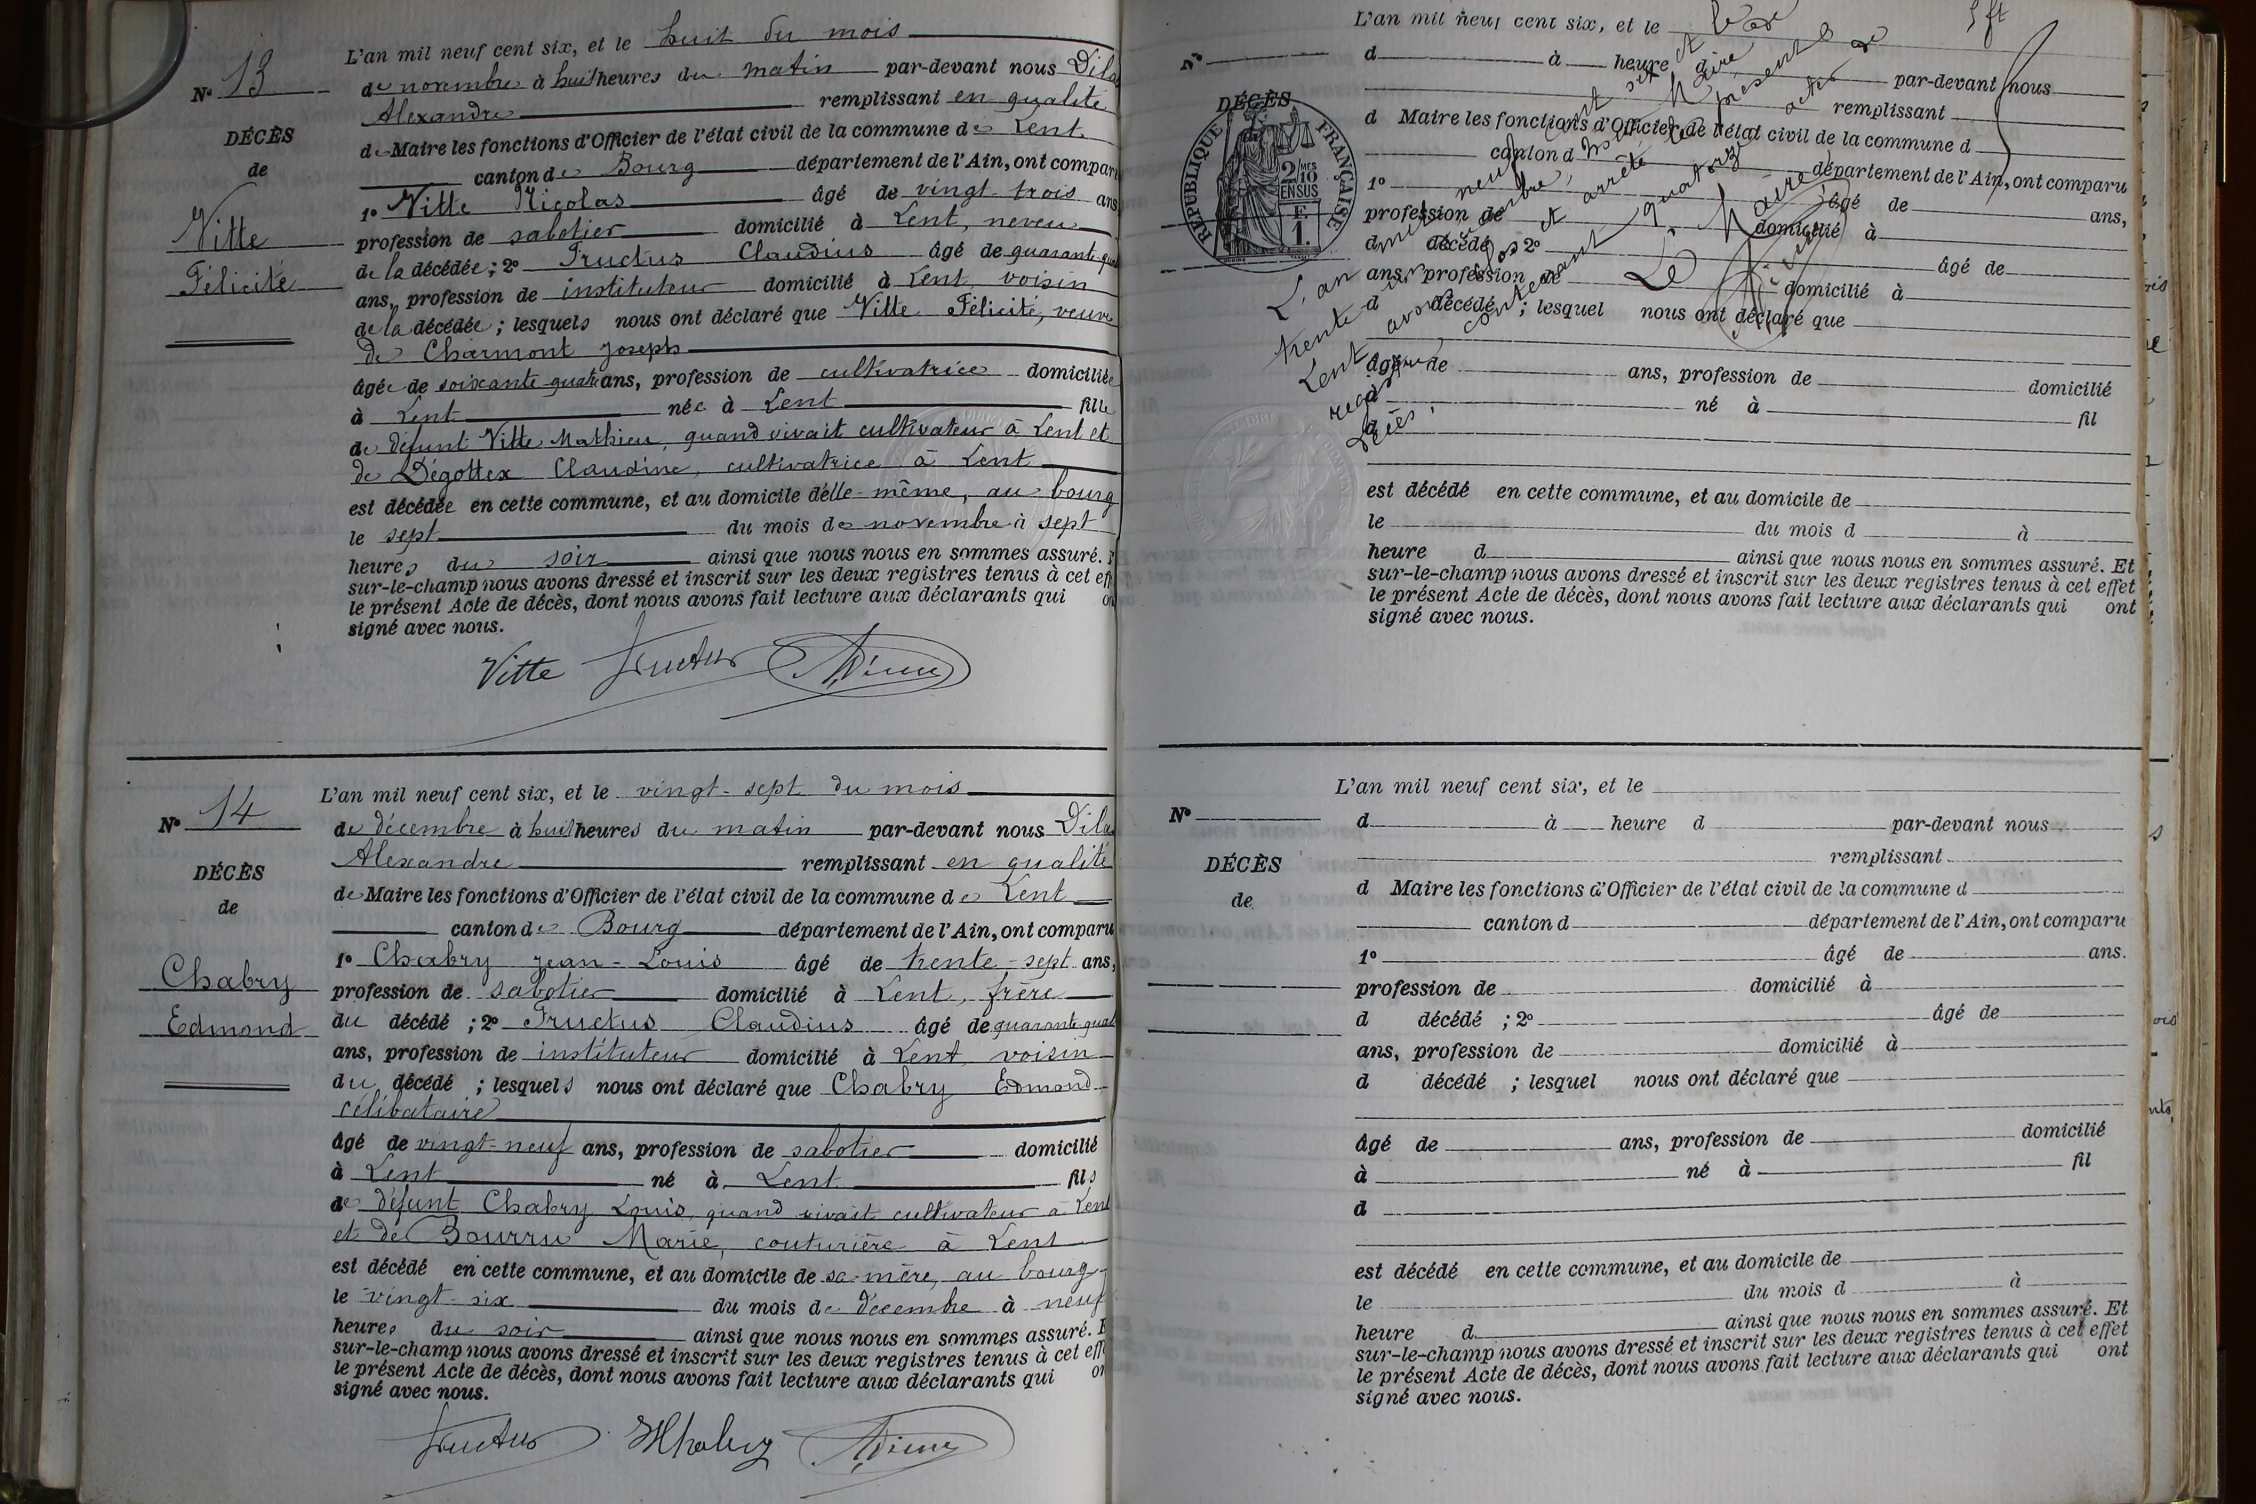 N° 13
DÉCÈS
de
Vitte
Félicité
L'an mil neuf cent six, et le huit du mois
de novembre à huit heures du matin par-devant nous
Alexandre remplissant en qualité
de Maire les fonctions d'Officier de l'état civil de la commune de Lent
canton de Bourg département de l'Ain, ont compar
1° Vitte Nicolas âgé de vingt-trois ans
profession de sabotier domicilié à Lent, neveu
de la décédée ; 2° Fructus Claudius âgé de quarante
ans, profession de instituteur domicilié à Lent, voisin
de la décédée ; lesquels nous ont déclaré que Vitte Félicité, veuve
de Charmont Joseph
âgée de soixante-quatre ans, profession de cultivatrice domiciliée
à Lent née à Lent fille
de défunt Vitte Mathieu, quand vivait cultivateur à Lent et
de Dégottex Claudine, cultivatrice à Lent
est décédée en cette commune, et au domicile d'elle-même, au bourg
le sept du mois de novembre à sept
heures du soir ainsi que nous nous en sommes assuré.
sur-le-champ nous avons dressé et inscrit sur les deux registres tenus à cet eff
le présent Acte de décès, dont nous avons fait lecture aux déclarants qui on
signé avec nous.
Vitte Fructus
N° 14
DÉCÈS
de
Chabry
Edmond
L'an mil neuf cent six, et le vingt-sept du mois
de décembre à huit heures du matin par-devant nous
Alexandre remplissant en qualité
de Maire les fonctions d'Officier de l'état civil de la commune de Lent
canton de Bourg département de l'Ain, ont comparu
1° Chabry Jean-Louis âgé de trente-sept ans,
profession de sabotier domicilié à Lent, frère
du décédé ; 2° Fructus Claudius âgé de quarante
ans, profession de instituteur domicilié à Lent, voisin
du décédé ; lesquels nous ont déclaré que Chabry Edmond
célibataire
âgé de vingt-neuf ans, profession de sabotier domicilié
à Lent né à Lent fils
de défunt Chabry Louis, quand vivait cultivateur à Lent
et de Bourru Marie, couturière à Lent
est décédé en cette commune, et au domicile de sa mère, au bourg
le vingt-six du mois de décembre à neuf
heures du soir ainsi que nous nous en sommes assuré. E
sur-le-champ nous avons dressé et inscrit sur les deux registres tenus à cet eff
le présent Acte de décès, dont nous avons fait lecture aux déclarants qui on
signé avec nous.
Fructus Chabry
N°
DÉCÈS
RÉPUBLIQUE FRANÇAISE
2/10
EN SUS
L'an mil neuf cent six, et le
d à heure d par-devant nous
remplissant
d Maire les fonctions d'Officier de l'état civil de la commune d
canton d département de l'Ain, ont comparu
1° âgé de ans,
profession de domicilié à
d décédé 2° âgé de
ans, profession de domicilié à
d décédé ; lesquel nous ont déclaré que
âgé de ans, profession de domicilié
à né à fil
d
est décédé en cette commune, et au domicile de
le du mois d à
heure d ainsi que nous nous en sommes assuré. Et
sur-le-champ nous avons dressé et inscrit sur les deux registres tenus à cet effet
le présent Acte de décès, dont nous avons fait lecture aux déclarants qui ont
signé avec nous.
L'an mil neuf cent six et le
trente et un décembre, nous Maire de
Lent avons clos et arrêté le présent
registre, contenant quatorze actes de
décès.
Le Maire
N°
DÉCÈS
de
L'an mil neuf cent six, et le
d à heure d par-devant nous
remplissant
d Maire les fonctions d'Officier de l'état civil de la commune d
canton d département de l'Ain, ont comparu
1° âgé de ans.
profession de domicilié à
d décédé ; 2° âgé de
ans, profession de domicilié à
d décédé ; lesquel nous ont déclaré que
âgé de ans, profession de domicilié
à né à fil
d
est décédé en cette commune, et au domicile de
le du mois d à
heure d ainsi que nous nous en sommes assuré. Et
sur-le-champ nous avons dressé et inscrit sur les deux registres tenus à cet effet
le présent Acte de décès, dont nous avons fait lecture aux déclarants qui ont
signé avec nous.